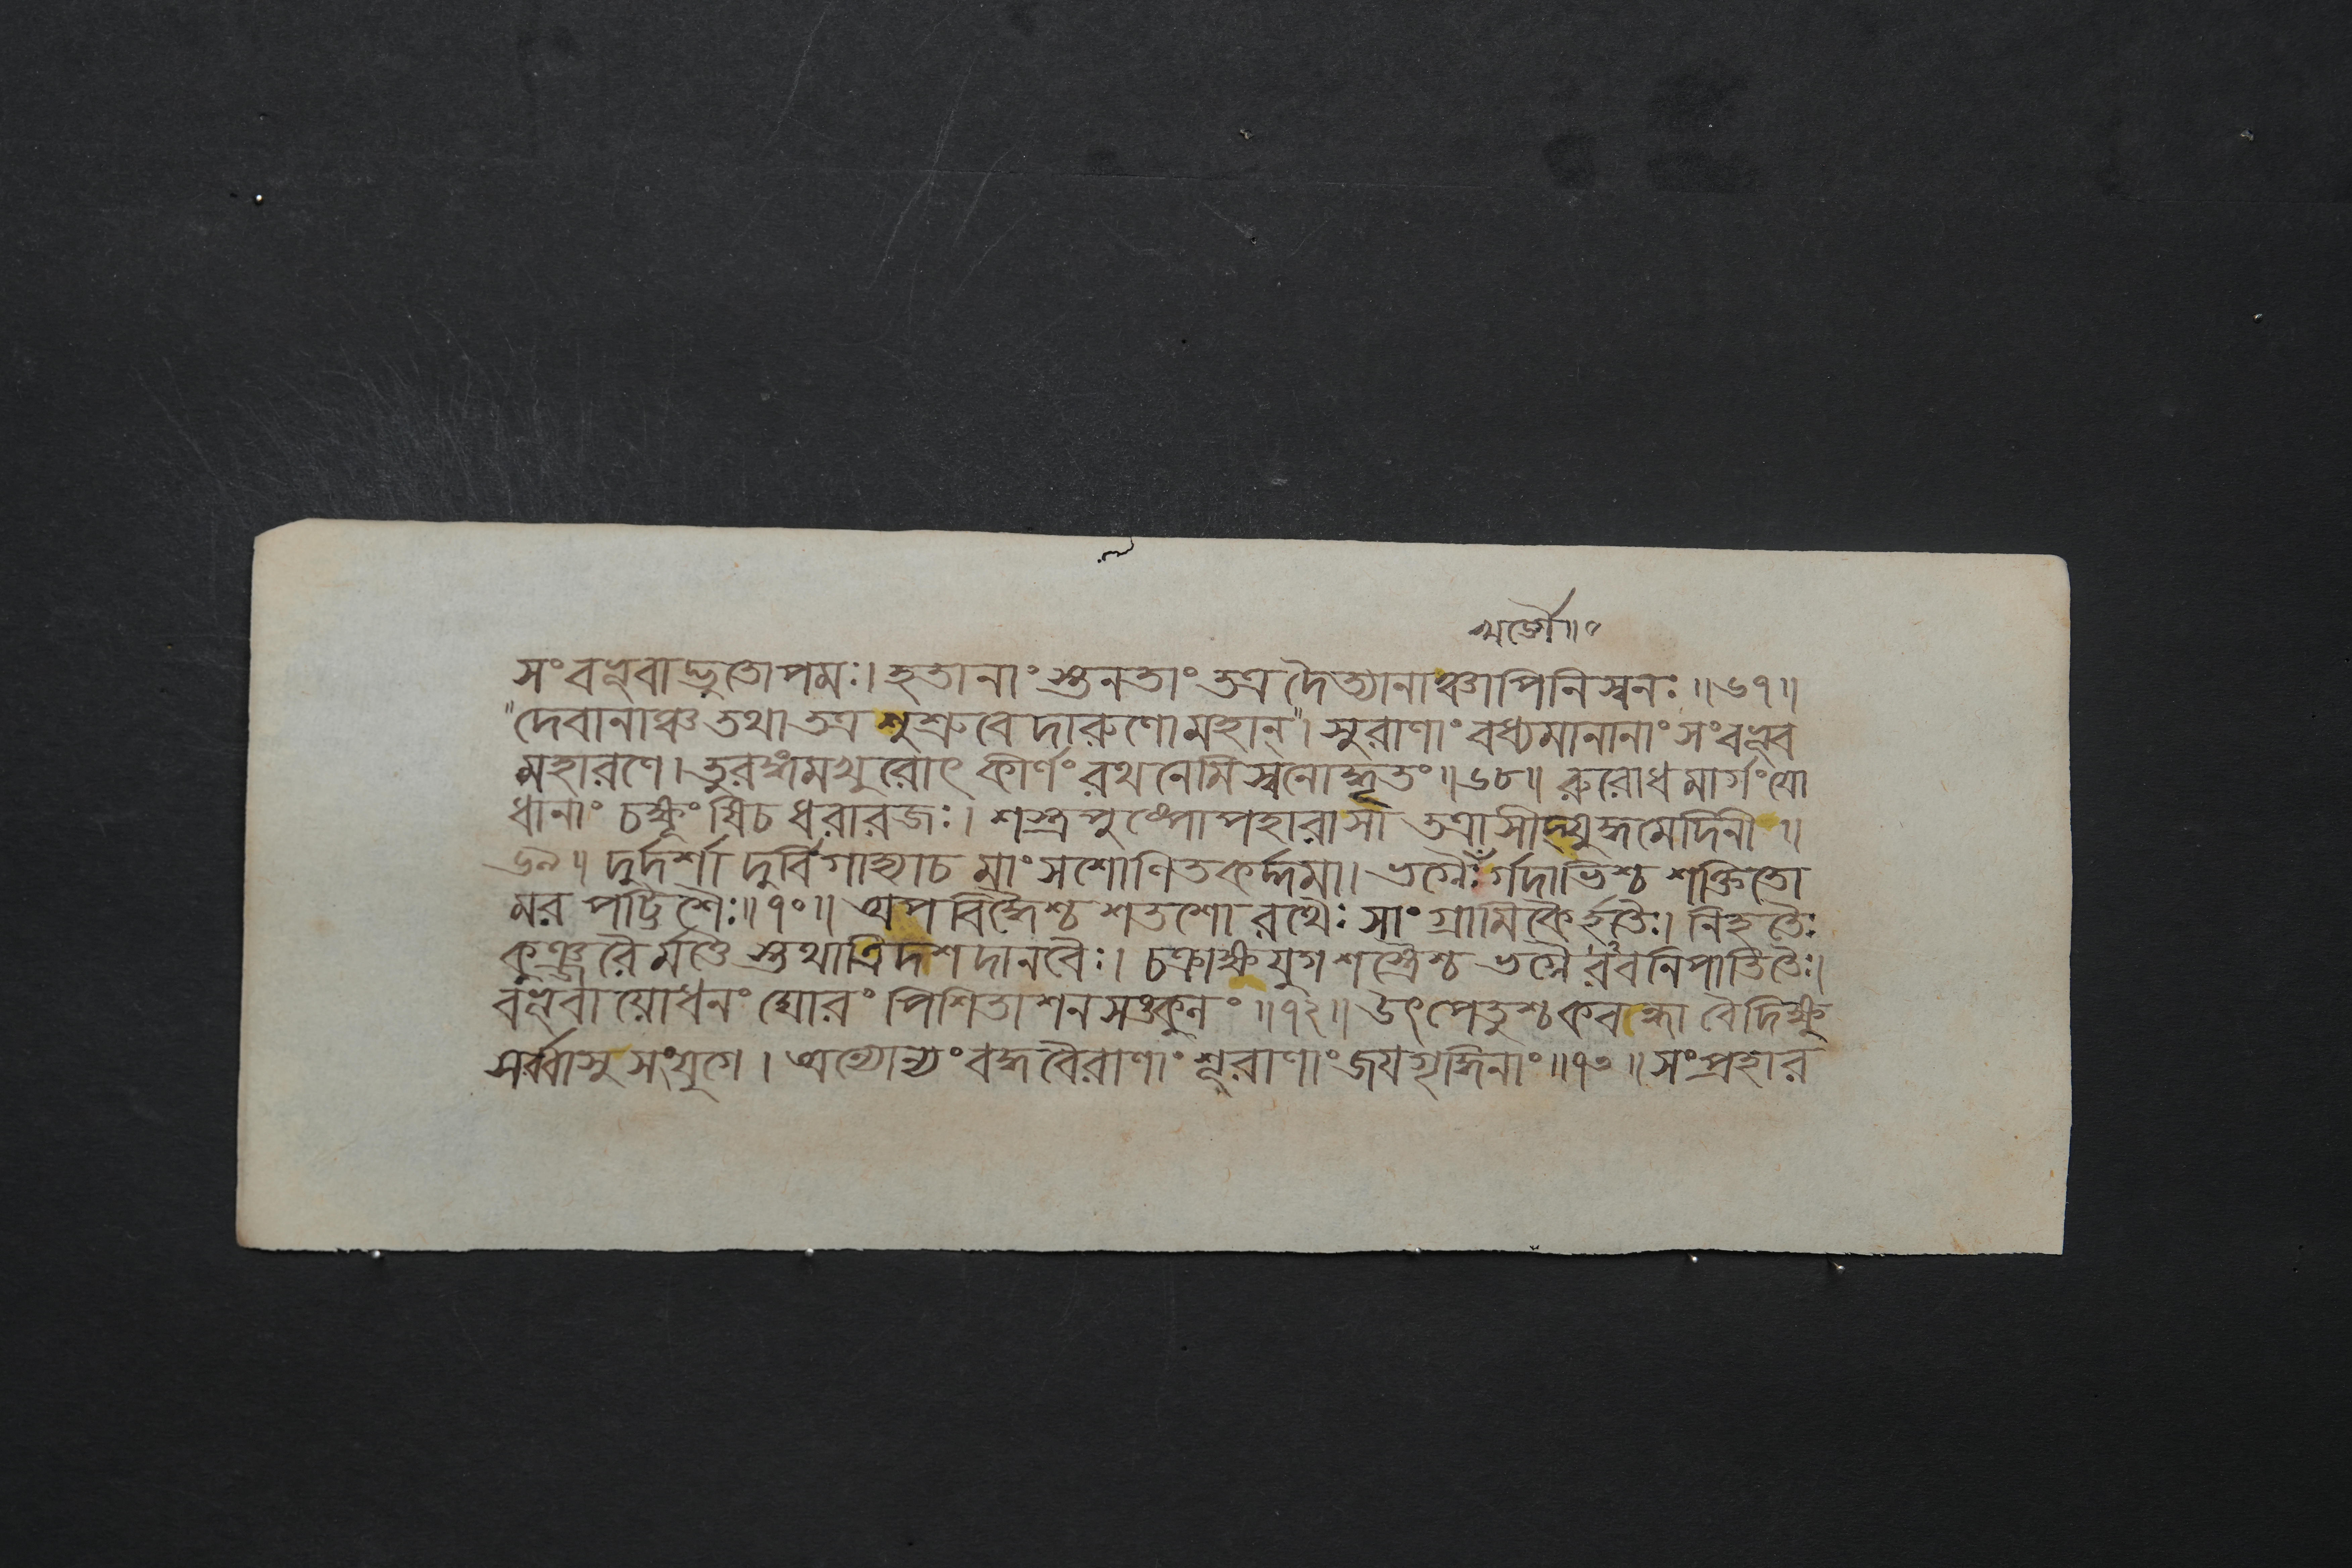 খড়্গৈ॥৭
সংবভূবাদ্ভুতোপমঃ। হতানাং স্তনতাং তত্র দৈত্যানাঞ্চাপিনিস্বনঃ॥৬৭॥
"দেবানাঞ্চ তথা তত্র শুশ্রুবে দারুণো মহান্"। সুরাণাং বধ্যমানানাং সংবভূব
মহারণে। তুরঙ্গমখুরোৎকীর্ণং রথনেমিস্বনোদ্ধতং॥৬৮॥ রুরোধ মার্গং যো
ধানাং চক্ষূংষি চ ধরারজঃ। শস্ত্রপুষ্পোপহারা সা তত্রাসীদ্যুদ্ধমেদিনী॥
৬৯॥ দুর্দর্শা দুর্বিগাহ্যা চ মাংসশোণিতকর্দ্দমা। ভগ্নৈঃ র্গদাভিশ্চ শক্তিতো
মর পট্টিশৈঃ॥৭০॥ অপবিদ্ধৈশ্চ শতশো রথৈঃ সাংগ্রামিকৈর্হতৈঃ। নিহতৈঃ
কুঞ্জরৈর্মত্তৈ স্তথা ত্রিদশদানবৈঃ। চক্রাক্ষযুগশস্ত্রৈশ্চ ভগ্নৈ রবনিপাতিতৈঃ।
বভূবায়োধনং ঘোরং পিশিতাশনসঙ্কুলং॥৭২॥ উৎপেতুশ্চ কবন্ধা বৈ দিক্ষু
সর্ব্বাসু সংযুগে। অন্যোন্যং বদ্ধবৈরাণাং শূরাণাং জয়গৃদ্ধিনাং॥৭৩॥ সংপ্রহার